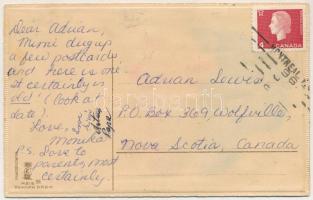 Dear Adrian,
Mimi dug up
a few postcards
and here is one.
It certainly is
old (look at
date).
Love,
Monika
P.S. Love to
parents, most
certainly.
4 CANADA
MONTREAL
Adrian Lewis
P.O. Box 369 Wolfville,
Nova Scotia, Canada